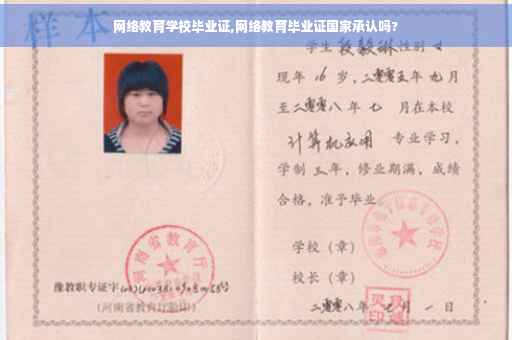 网络教育学校毕业证,网络教育毕业证国家承认吗?
样本
学生 段毅琳 性别 女
现年 16 岁，二零零五年 九 月
至二零零八 年 七 月在本校
计算机应用 专业学习，
学制 三 年，修业期满，成绩
合格，准予毕业
学校（章）
校长（章）
二零零八年 七 月 一 日
河南省教育厅
豫教职专证字
(河南省教育厅验印)